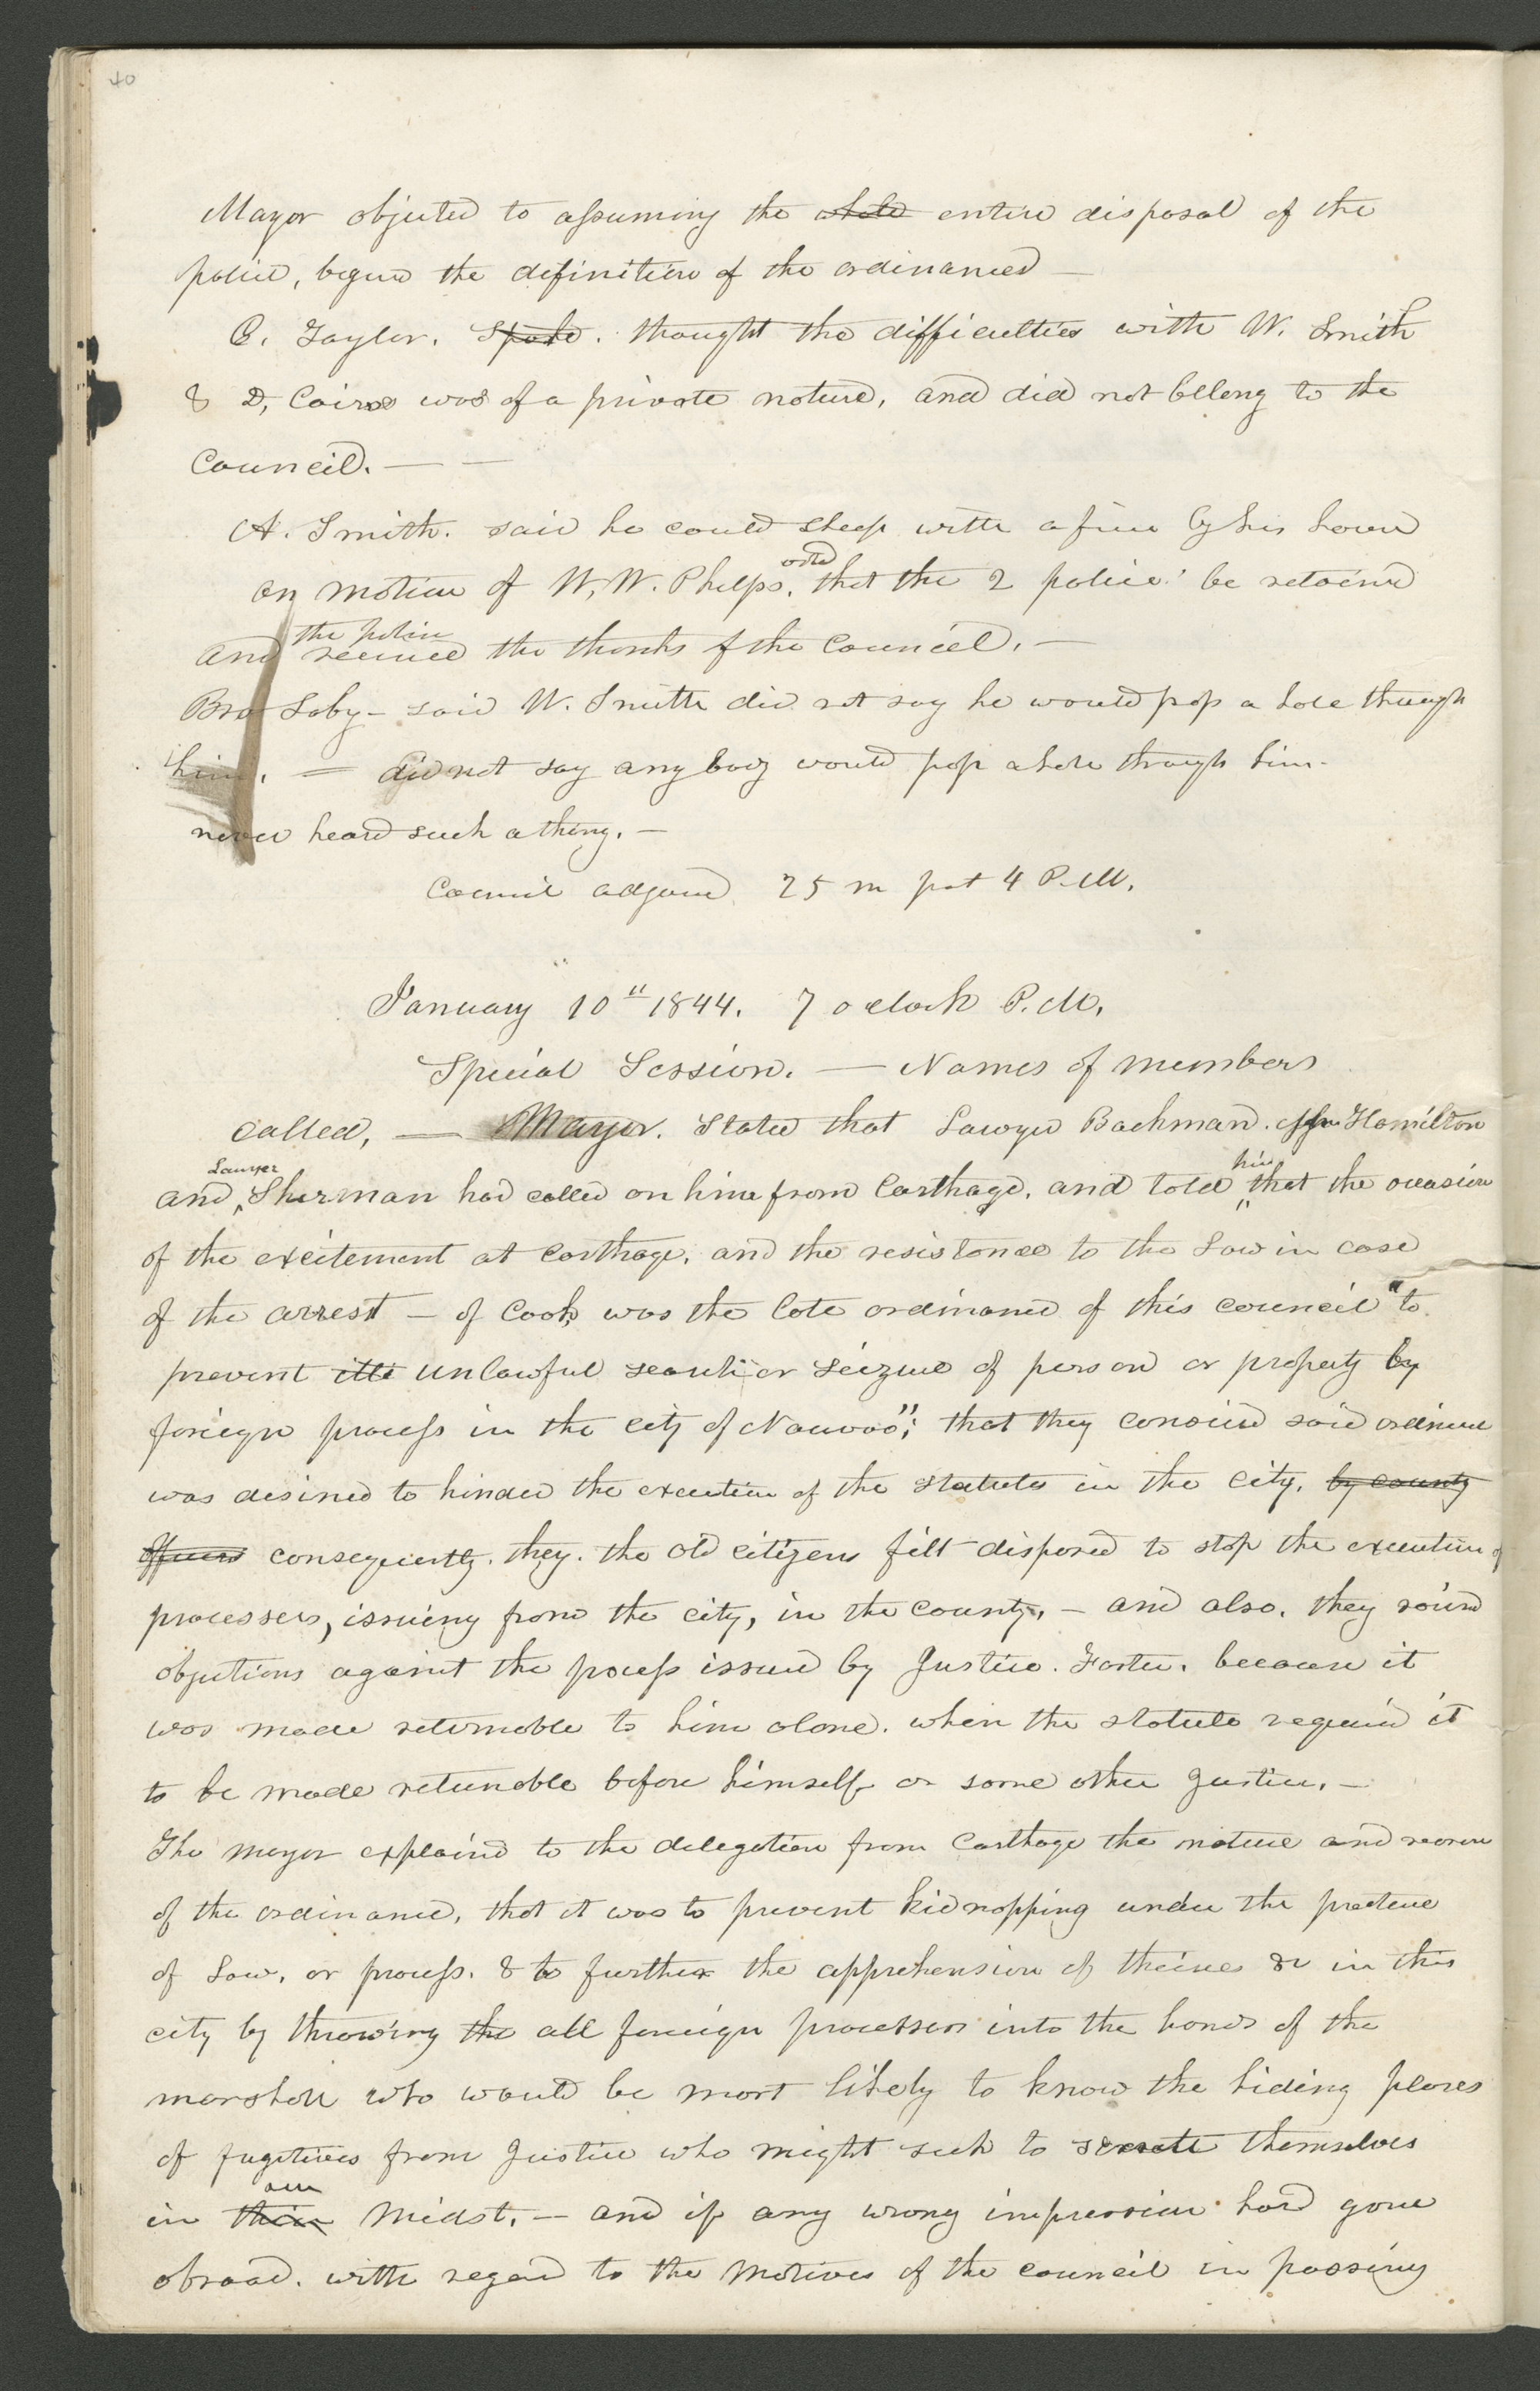 40
Mayor objected to assuming the whole entire disposal of the
police, beyond the definition of the ordinances —
C. Taylor. Spoke. thought the difficulties with W. Smith
& D, Cairns was of a private nature, and did not belong to the
Council. — —
A. Smith. said he could sleep with a fire by his house
on motion of W, W. Phelps. voted that the 2 police be retained
and the police received the thanks of the Council. —
Bro Soby - said W. Smith did not say he would pop a hole through
him. = did not say any body would pop a hole through him -
never heard such a thing. —
Council adjourned 25 m past 4 P.M.
January 10" 1844. 7 o clock P.M.
Special Session. — Names of members
called, — Mayor. Stated that Lawyer Backman. Hamilton
and Lawyer Sherman had called on him from Carthage. and told him that the occasion
of the excitement at Carthage, and the resistance to the Law in case
of the arrest — of Cook was the late ordinance of this council "to
prevent unlawful search or seizure of person or property by
foreign process in the city of Nauvoo"; that they considered said ordinance
was desined to hinder the execution of the statutes in the city, by county
officers consequently. they. the old citizens felt disposed to stop the execution of
processes, issuing from the city, in the county, — and also. they raised
objections against the process issued by Justice. Foster. because it
was made returnable to him alone. when the statute required it
to be made returnable before himself or some other Justice. —
The mayor explained to the delegation from Carthage the nature and reason
of the ordinance, that it was to prevent kidnapping under the pretence
of Law, or process. & to further the apprehension of thieves &c in this
city by throwing the all foreign processes into the hands of the
marshall who would be most likely to know the hiding places
of fugitives from Justice who might seek to secrete themselves
in their our midst. — and if any wrong impression had gone
abroad. with regard to the motives of the council in passing